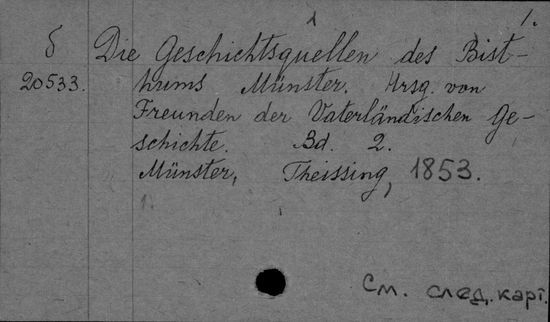 1 1.
δ Die Geschichtsquellen des Bist-
20533. hums Münster. Hrsg. von
Freunden der Vaterländischen Ge-
schichte. Bd. 2.
Münster, Theissing, 1853.
1.
См. след. карт.